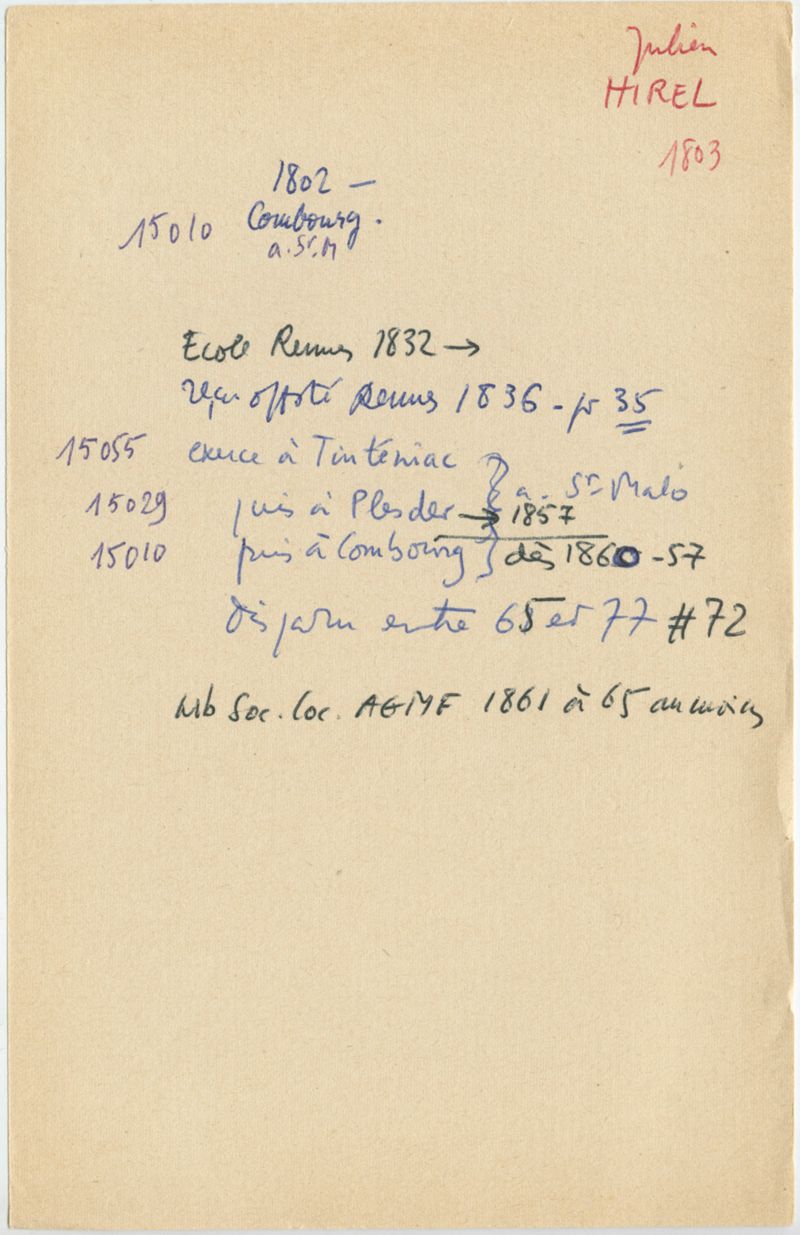 Julien
HIREL
1803
1802 —
15010 Combourg.
a. St. M
Ecole Rennes 1832 →
reçu offté Rennes 1836 - pr 35
15055 exerce à Tinténiac
a. St-Malo
15029 puis à Plesder → 1857
15010 puis à Combourg dès 1860 - 57
Disparu entre 65 et 77 # 72
Mb Soc. loc. AGMF 1861 à 65 au moins